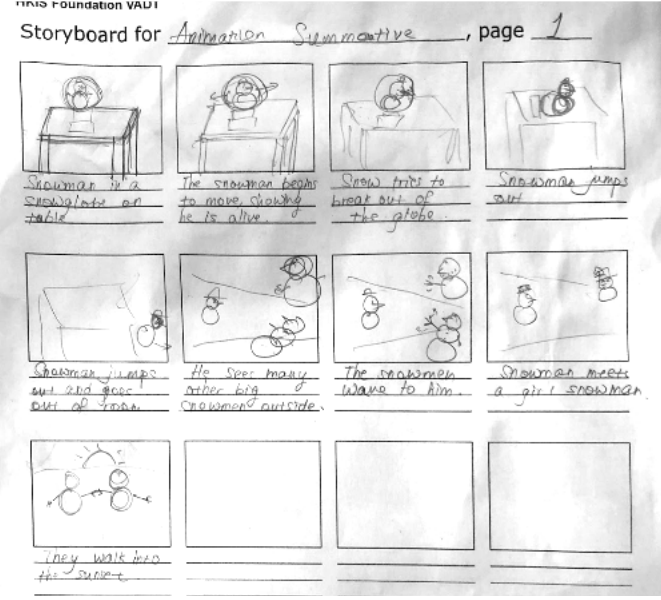 HKIS Foundation VADT
Storyboard for Animation Summative, page 1
Snowman in a
snowglobe on
table
The snowman begins
to move, showing
he is alive.
Snow tries to
break out of
the globe.
Snowman jumps
out
Snowman jumps
out and goes
out of room
He sees many
other big
snowmen outside.
The snowmen
wave to him.
Snowman meets
a girl snowman
They walk into
the sunset